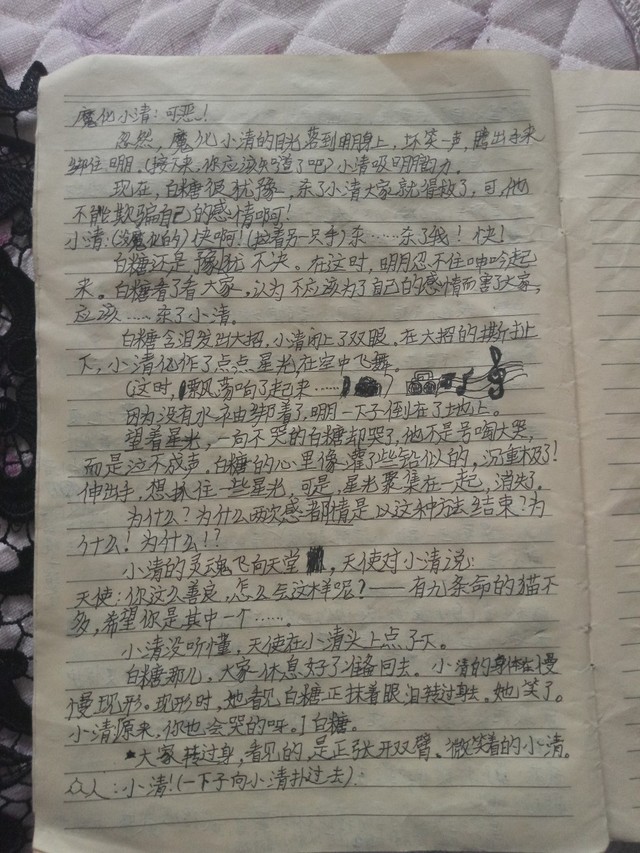 魔化小清：可恶！
忽然，魔化小清的目光落到明月身上，坏笑一声，腾出手来
绑住明月。（接下来，你应该知道了吧）小清吸明月的力。
现在，白糖很犹豫，杀了小清大家就得救了，可，他
不能欺骗自己的感情啊！
小清：（没魔化的）快啊！（拉着另一只手）杀……杀了我！快！
白糖还是豫犹不决。在这时，明月忍不住呻吟起
来。白糖看了看大家，认为不应该为了自己的感情而害了大家，
应该……杀了小清。
白糖含泪发出大招，小清闭上了双眼，在大招的撕扯
下，小清化作了点点星光在空中飞舞。
（这时，飘荡响了起来……）
因为没有水袖绑着了，明月一下子倒在了地上。
望着星光，一向不哭的白糖却哭了，他不是号啕大哭，
而是泣不成声。白糖的心里像灌了些铅似的，沉重极了！
伸出手，想抓住一些星光，可是，星光聚集在一起，消失了。
为什么？为什么两次感情都是以这种方法结束？为
什么！为什么！？
小清的灵魂飞向天堂，天使对小清说：
天使：你这么善良，怎么会这样呢？——有九条命的猫不
多，希望你是其中一个……。
小清没听懂，天使在小清头上点了下。
白糖那儿，大家休息好了准备回去。小清的身体在慢
慢现形。现形时，她看见白糖正抹着眼泪转过身去。她笑了。
小清原来，你也会哭的呀。白糖。
大家转过身，看见的，是正张开双臂、微笑着的小清。
众人：小清！（一下子向小清扑过去）